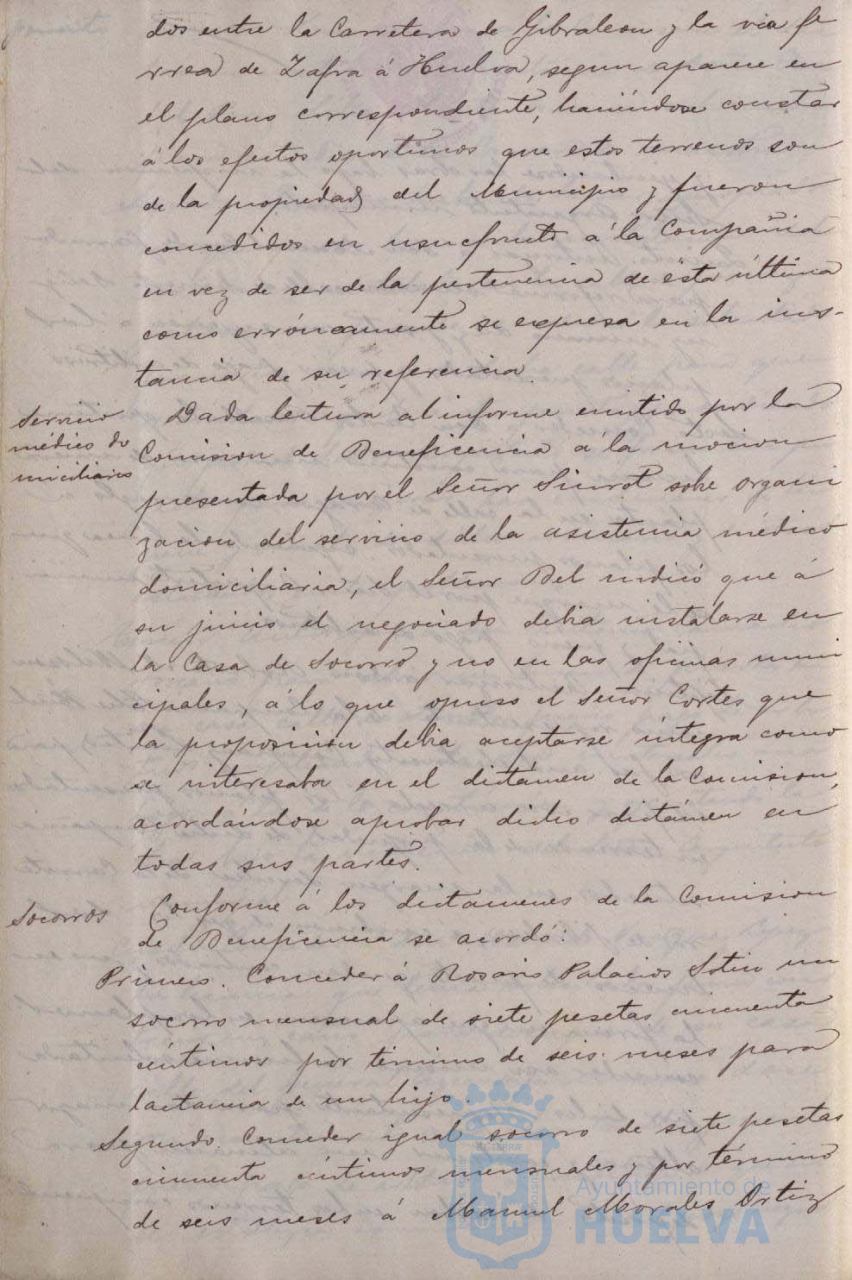 dos entre la Carretera de Gibraleon y la via fe
rrea de Zafra á Huelva, segun aparece en
el plano correspondiente, haciéndose constar
á los efectos oportunos que estos terrenos son
de la propiedad del Municipio y fueron
concedidos en usucfructo á la Compañia
en vez de ser de la pertenencia de ésta última
como erróneamente se expresa en la ins-
tancia de su referencia.
Servicio
médico do
miciliario
Dada lectura al informe emitido por la
Comision de Beneficencia á la mocion
presentada por el Señor Sinrot sobre organi
zacion del servicio de la asistencia médico
domiciliaria, el Señor Bel indicó que á
su juicio el negociado debia instalarse en
la Casa de Socorro y no en las oficinas muni
cipales, á lo que opuso el Señor Cortes que
la proposicion debia aceptarse íntegra como
se interesaba en el dictámen de la Comision,
acordándose aprobar dicho dictámen en
todas sus partes.
Socorros
Conforme á los dictamenes de la Comision
de Beneficencia se acordó:
Primero. Conceder á Rosario Palacios Sotico un
socorro mensual de siete pesetas cincuenta
céntimos por término de seis meses para
lactancia de un hijo.
Segundo. Conceder igual socorro de siete pesetas
cincuenta céntimos mensuales y por término
de seis meses á Manuel Morales Ortiz
Ayuntamiento de
HUELVA